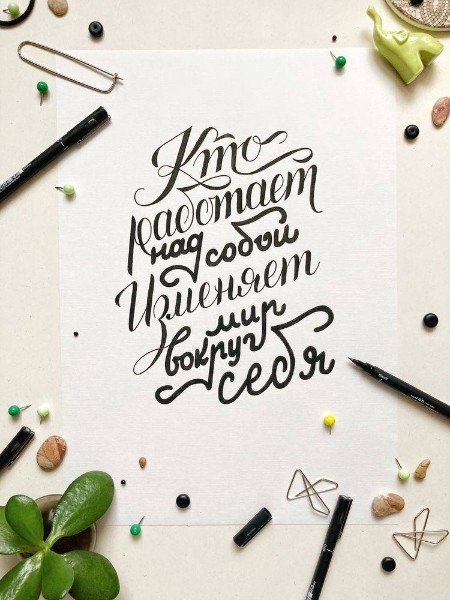 Кто
работает
над собой
Изменяет
мир
вокруг
себя